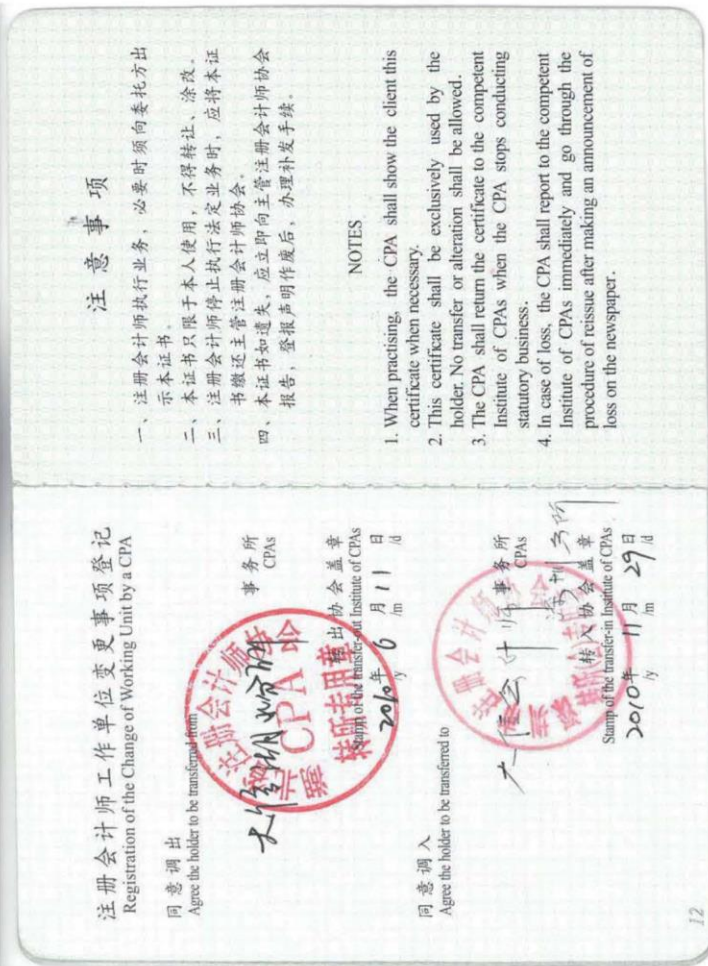 注册会计师工作单位变更事项登记
Registration of the Change of Working Unit by a CPA
同意调出
Agree the holder to be transferred from
事务所
CPAs
注册会计师
CPA
转所专用章
转出协会盖章
Stamp of the transfer-out Institute of CPAs
2010年 6 月 11 日
/y /m /d
同意调入
Agree the holder to be transferred to
大信会计师
事务所
CPAs
注册会计师
转所专用章
转入协会盖章
Stamp of the transfer-in Institute of CPAs
2010年 11 月 29 日
/y /m /d
12
注意事项
一、注册会计师执行业务，必要时须向委托方出
示本证书。
二、本证书只限于本人使用，不得转让、涂改。
三、注册会计师停止执行法定业务时，应将本证
书缴还主管注册会计师协会。
四、本证书如遗失，应立即向主管注册会计师协会
报告，登报声明作废后，办理补发手续。
NOTES
1. When practising, the CPA shall show the client this
certificate when necessary.
2. This certificate shall be exclusively used by the
holder. No transfer or alteration shall be allowed.
3. The CPA shall return the certificate to the competent
Institute of CPAs when the CPA stops conducting
statutory business.
4. In case of loss, the CPA shall report to the competent
Institute of CPAs immediately and go through the
procedure of reissue after making an announcement of
loss on the newspaper.